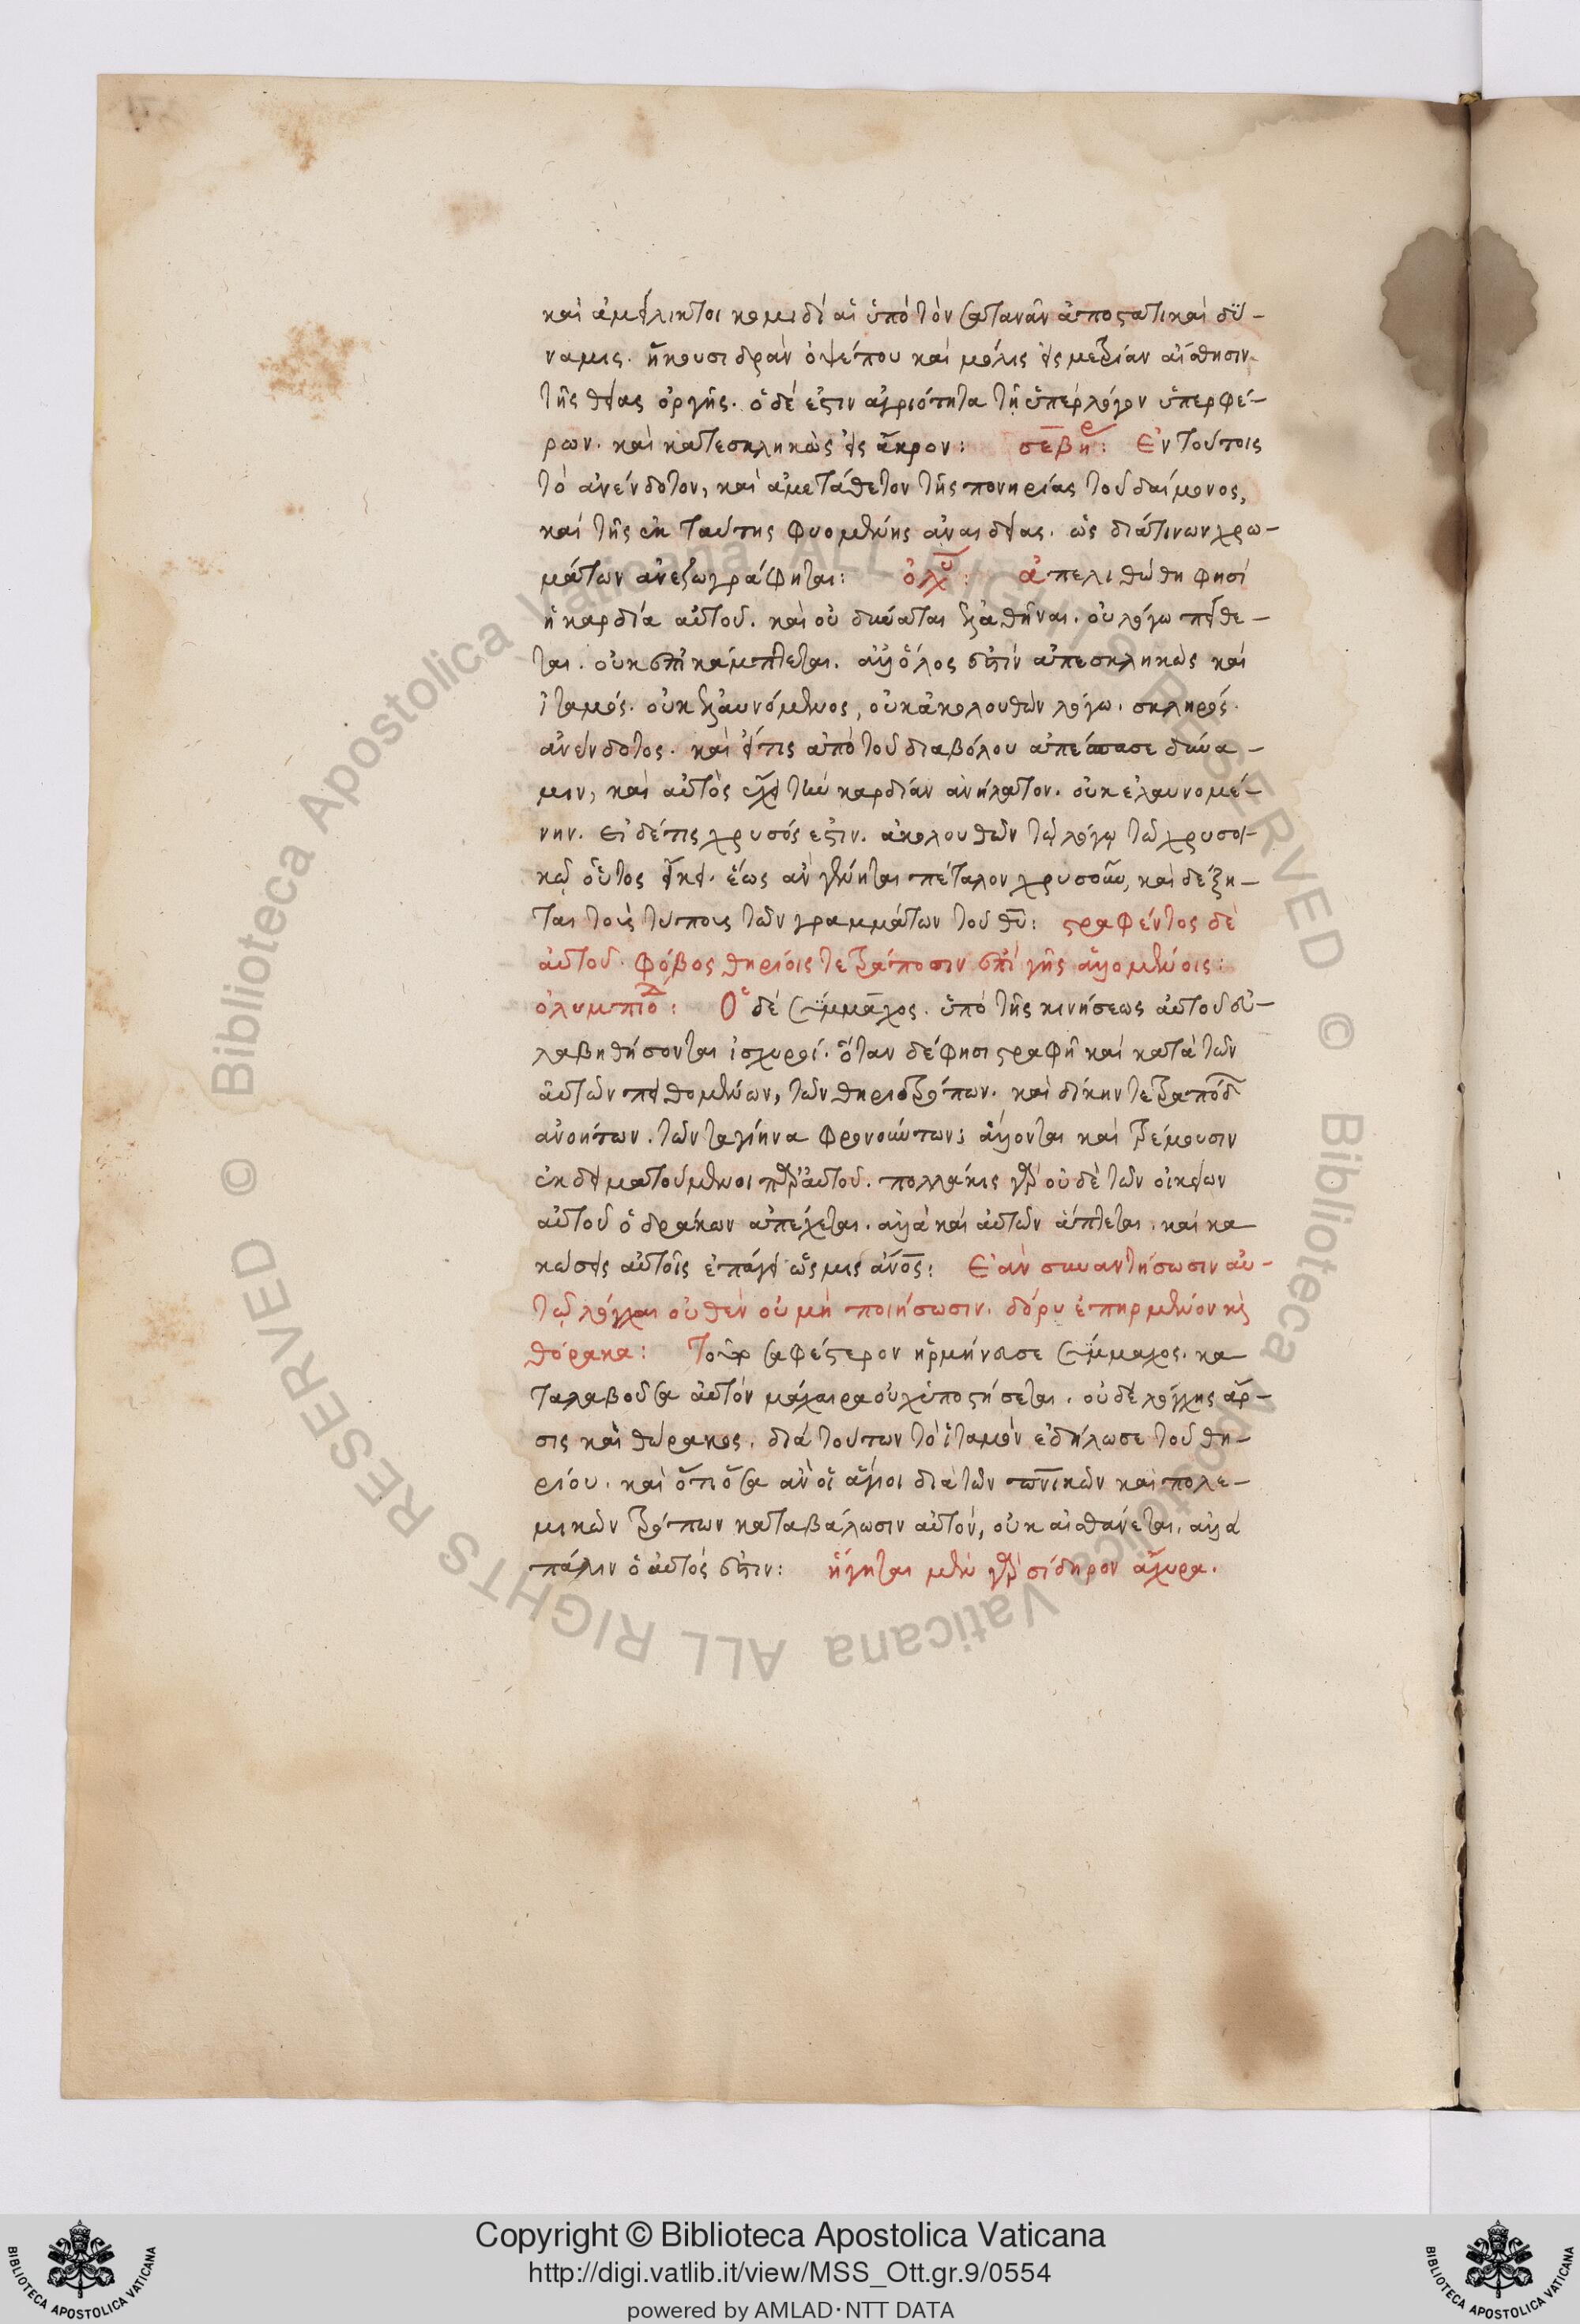 καὶ ἀμείλικτοι κομιδῆ αἱ ὑπὸ τὸν σατανᾶν ἀποστατικαὶ δυ-
νάμεις. ἥκουσι δρᾶν ὀψέ που καὶ μόλις εἰς μετρίαν αἴσθησιν
τῆς θείας ὀργῆς. ὁ δέ ἐστιν ἀγριότητα τῆ ὑπὲρ λόγον ὑπερφέ-
ρων. καὶ κατεσκληκὼς εἰς ἄκρον: σεβηρ: Ἐν τούτοις
τὸ ἀνένδοτον, καὶ ἀμετάθετον τῆς πονηρίας τοῦ δαίμονος,
καὶ τῆς ἐκ ταύτης φυομένης ἀναιδείας. ὡς διά τινων χρω-
μάτων ἀνεζωγράφηται: ὀλυ: ἀπελιθώθη φησὶ
ἡ καρδία αὐτοῦ. καὶ οὐ δύναται ἐλαθῆναι. οὐ λόγω πείθε-
ται. οὐκ ἐπικάμπτεται. ἀλλ' ὅλος ἐστὶν ἀπεσκληκὼς καὶ
ἰταμός. οὐκ ἐλαυνόμενος, οὐκ ἀκολουθῶν λόγω. σκληρός.
ἀνένδοτος. καὶ εἴ τις ἀπὸ τοῦ διαβόλου ἀπέσπασε δύνα-
μιν, καὶ αὐτὸς ἔχει τὴν καρδίαν ἀνήλατον. οὐκ ἐλαυνομέ-
νην. εἰ δέ τις χρυσός ἐστιν. ἀκολουθῶν τῷ λόγῳ τῷ χρυσοι-
κῷ οὗτος εἴκει. ἕως ἂν γένηται πέταλον χρυσοῦν, καὶ δέξη-
ται τοὺς τύπους τῶν γραμμάτων τοῦ θυ: στραφέντος δὲ
αὐτοῦ. φόβος θηρίοις τετράποσιν ἐπὶ γῆς ἁλλομένοις:
ὀλυμπιοδ: Ὁ δὲ σύμμαχος. ὑπὸ τῆς κινήσεως αὐτοῦ συ-
λαβηθήσονται ἰσχυροί. ὅταν δέ φησι στραφῆ καὶ κατὰ τῶν
αὐτῶν πειθομένων, τῶν θηριοτρόπων. καὶ δίκην τετραπόδ
ἀνοήτων. τῶν τὰ γήϊνα φρονούντων: ἅλλονται καὶ τρέμουσιν
ἐκδειματούμενοι παρ' αὐτοῦ. πολλάκις γὰρ οὐδὲ τῶν οἰκείων
αὐτοῦ ὁ δράκων ἀπέχεται. ἀλλὰ καὶ αὐτῶν ἅπτεται. καὶ κα
κώσεις αὐτοῖς ἐπάγει ὡς μισανος: Ἐὰν συναντήσωσιν αὐ-
τῷ λόγχαι οὐθὲν οὐ μὴ ποιήσωσιν. δόρυ ἐπηρμένον καὶ
θόρακα: Τοῦτο σαφέστερον ἡρμήνευσε σύμμαχος. κα
ταλαβοῦσα αὐτὸν μάχαιρα οὐχ ὑποστήσεται. οὐδὲ λόγχης ἄρ-
σις καὶ θώρακος. διὰ τούτων τὸ ἰταμὸν ἐδήλωσε τοῦ θη-
ρίου. καὶ ὅτι ὅσα ἂν οἱ ἅγιοι διὰ τῶν πνικῶν καὶ πολε-
μικῶν τρόπων καταβάλωσιν αὐτόν, οὐκ αἰσθάνεται. ἀλλὰ
πάλιν ὁ αὐτός ἐστιν: ἥγηται μὲν γὰρ σίδηρον ἄχυρα.
Copyright © Biblioteca Apostolica Vaticana
http://digi.vatlib.it/view/MSS_Ott.gr.9/0554
powered by AMLAD·NTT DATA